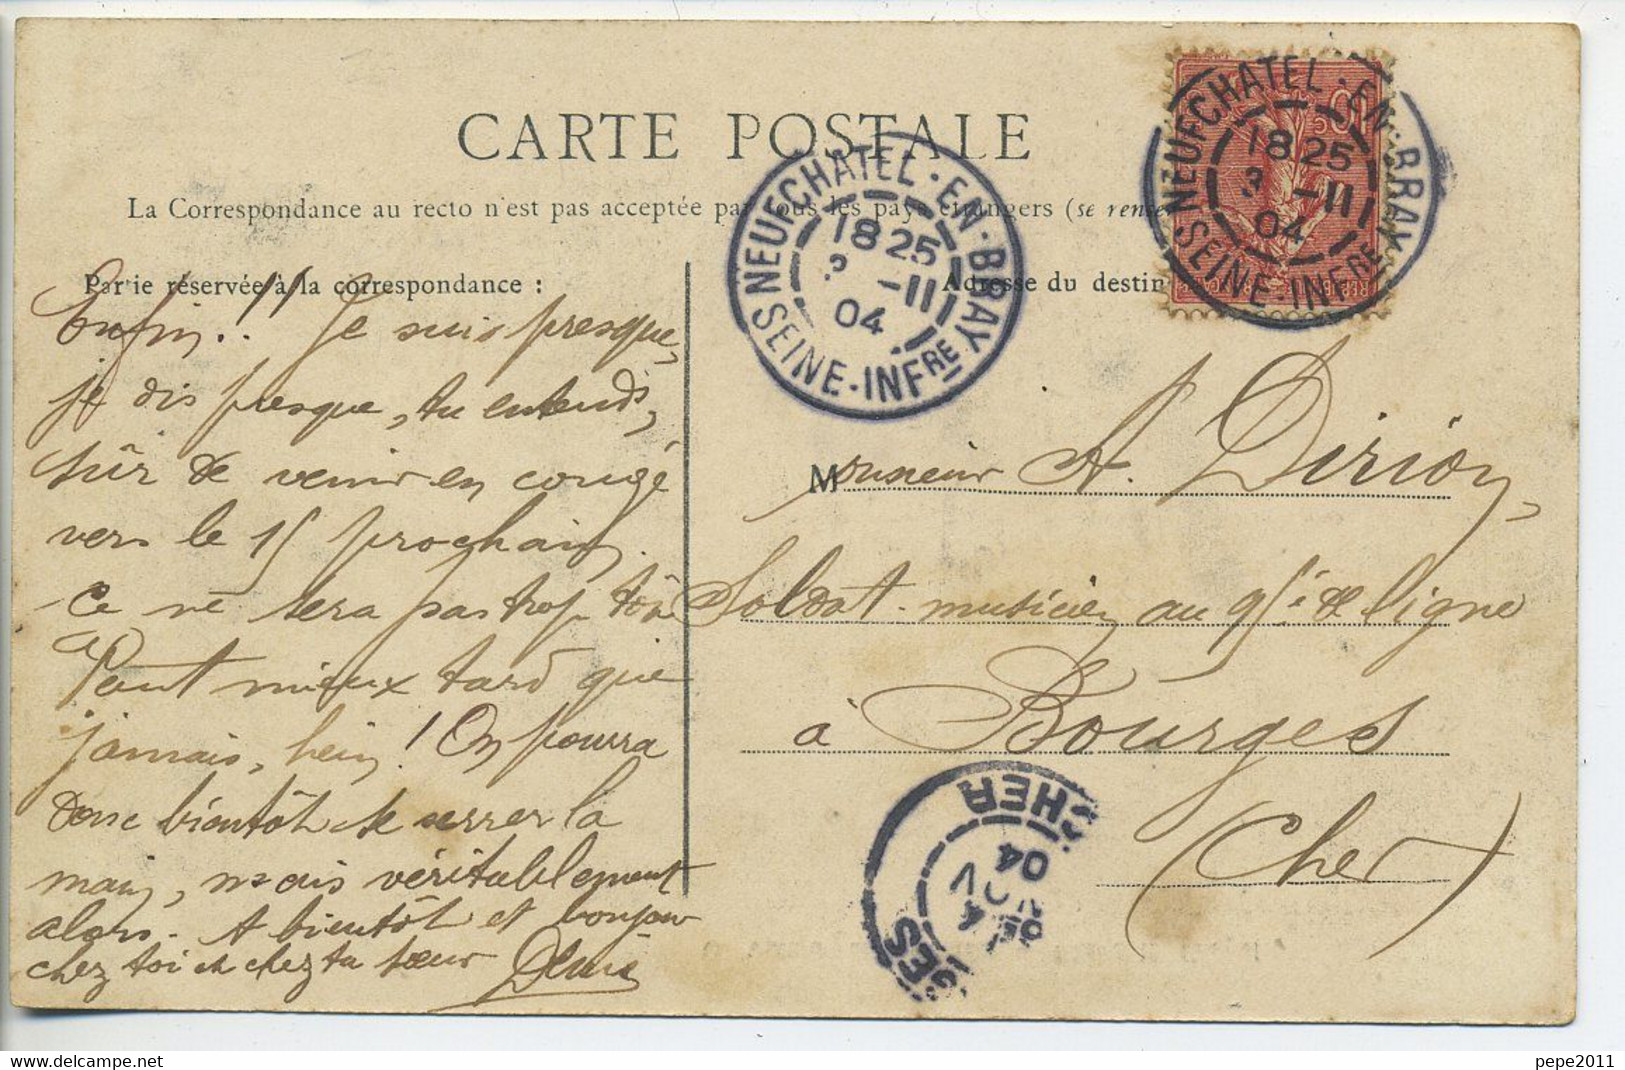 CARTE POSTALE
La Correspondance au recto n'est pas acceptée par tous les pays étrangers (se rense
Partie réservée à la correspondance :
Enfin..!! Je suis presque,
je dis presque, tu entends,
sûr de venir en congé
vers le 15 prochain.
Ce ne sera pas trop tôt
Vaut mieux tard que
jamais, hein! On pourra
donc bientôt te serrer la
main, mais véritablement
alors. A bientôt et bonjour
chez toi et chez ta sœur
Adresse du destin
Monsieur A. Dirion,
Soldat musicien au 95e de ligne
à Bourges
(Cher)
NEUFCHATEL-EN-BRAY
18 25
3 -11
04
SEINE-INFRE
NEUFCHATEL-EN-BRAY
18 25
3 -11
04
SEINE-INFRE
50
GES
CHER
4
NOV
04
pepe2011